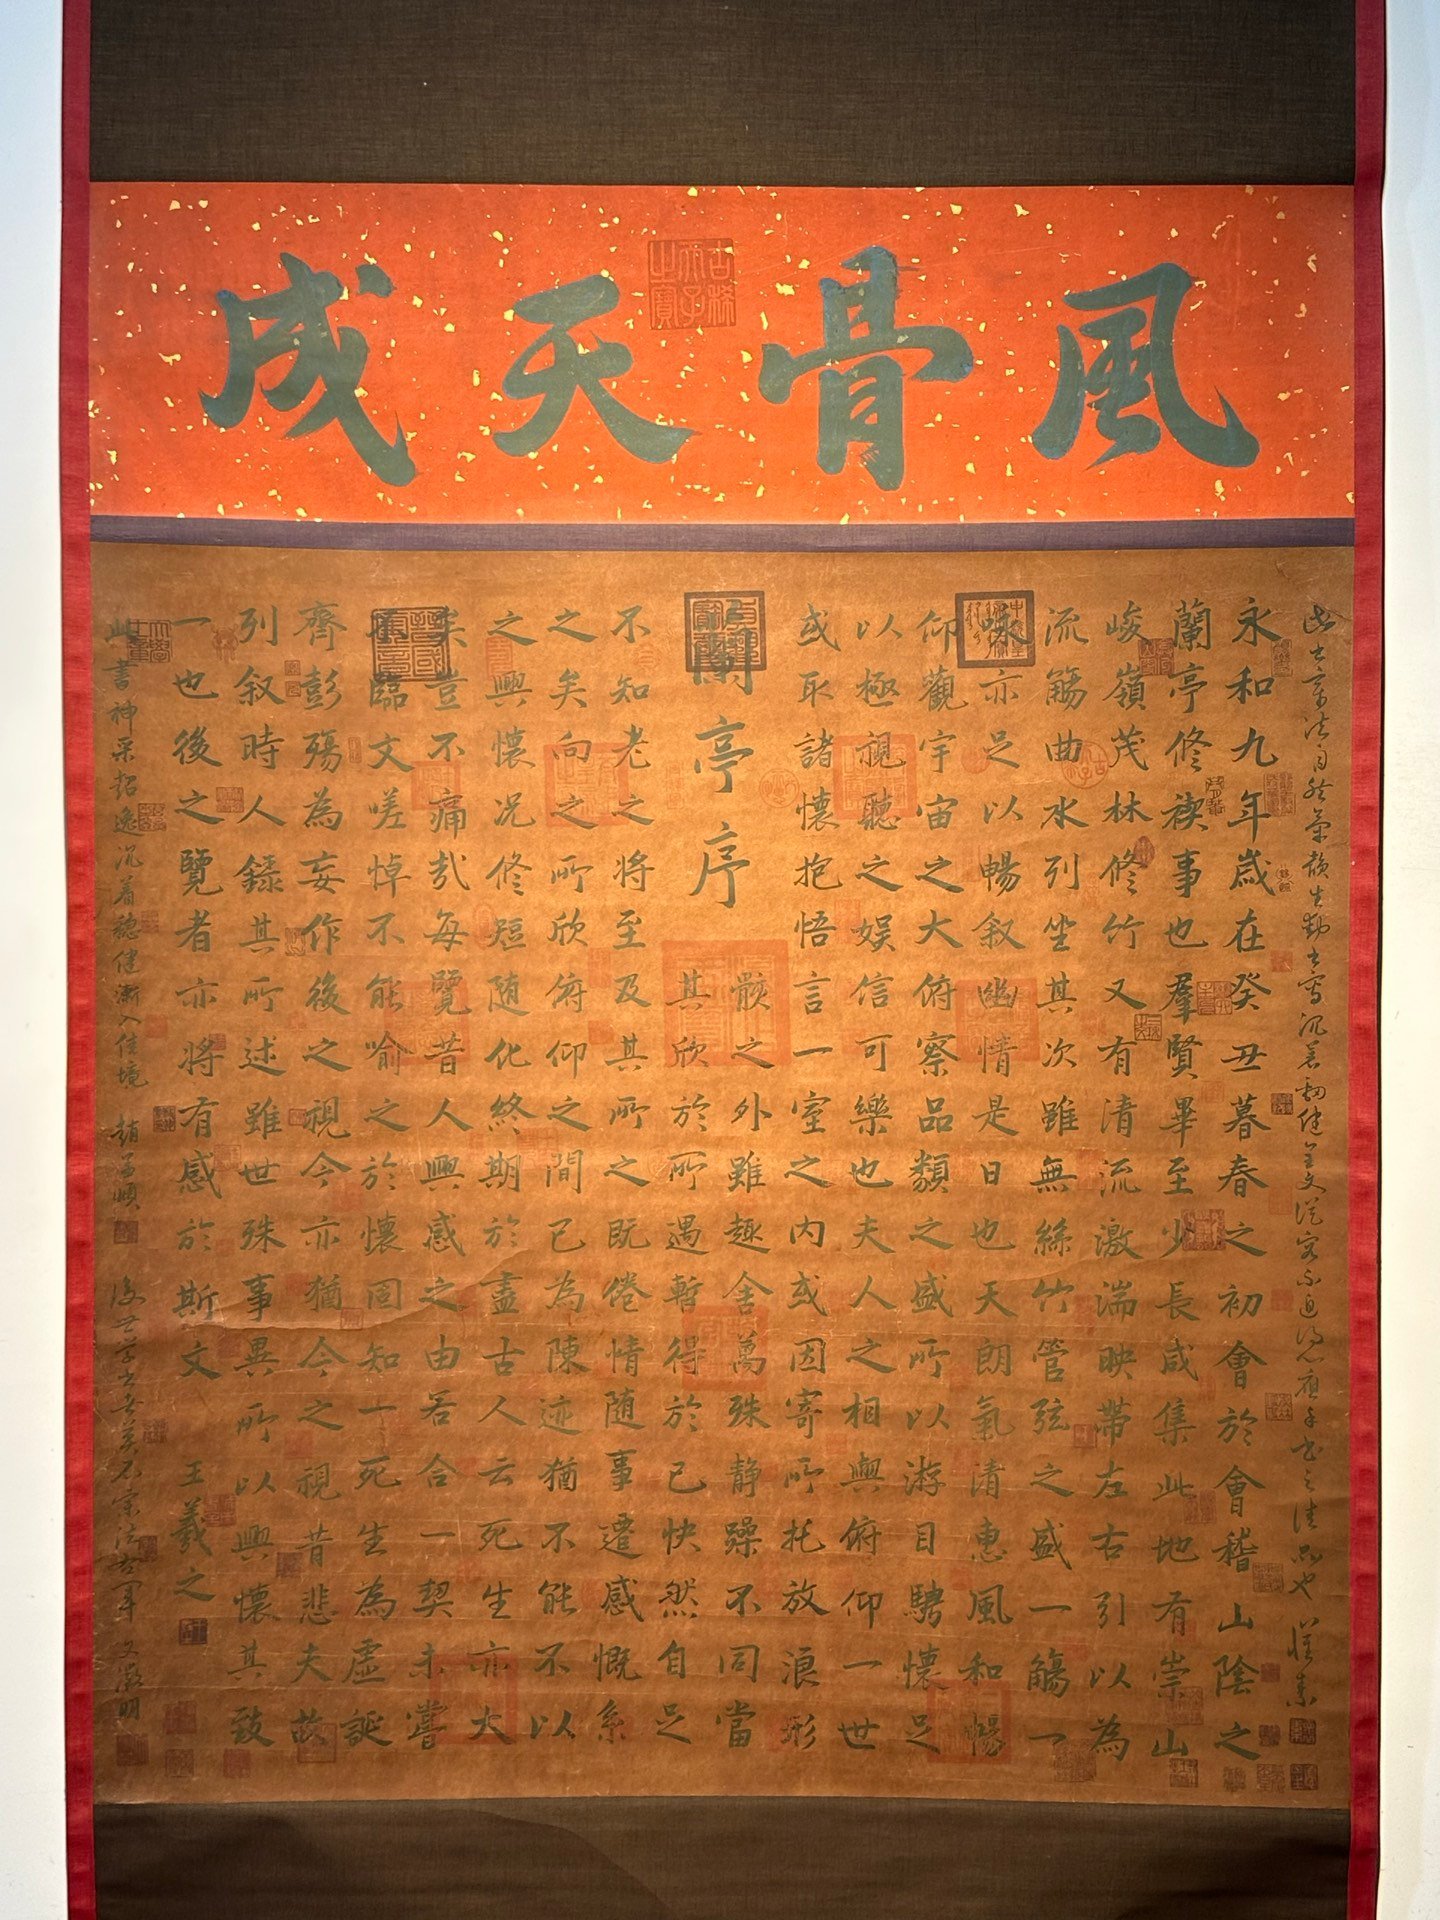 風骨天成
古稀天子之寶
此書章法自然氣韻生動書寫沉著勁健全文從容不迫得心應手書之佳品也 懷素
永和九年歲在癸丑暮春之初會於會稽山陰之
蘭亭修禊事也羣賢畢至少長咸集此地有崇山
峻嶺茂林修竹又有清流激湍映帶左右引以為
流觴曲水列坐其次雖無絲竹管弦之盛一觴一
詠亦足以暢叙幽情是日也天朗氣清惠風和暢
仰觀宇宙之大俯察品類之盛所以游目騁懷足
以極視聽之娛信可樂也夫人之相與俯仰一世
或取諸懷抱悟言一室之内或因寄所托放浪形
蘭亭序
骸之外雖趣舍萬殊静躁不同當
其欣於所遇暫得於己快然自足
不知老之將至及其所之既倦情随事遷感慨系
之矣向之所欣俯仰之間已為陳迹猶不能不以
之興懷况修短随化終期於盡古人云死生亦大
矣豈不痛哉每覽昔人興感之由若合一契未嘗
不臨文嗟悼不能喻之於懷固知一死生為虛誕
齊彭殤為妄作後之視今亦猶今之視昔悲夫故
列叙時人錄其所述雖世殊事異所以興懷其致
一也後之覽者亦將有感於斯文 王羲之
此書神采超逸沉着穩健漸入佳境 趙孟頫 後世學書者莫不宗法右軍 文徵明